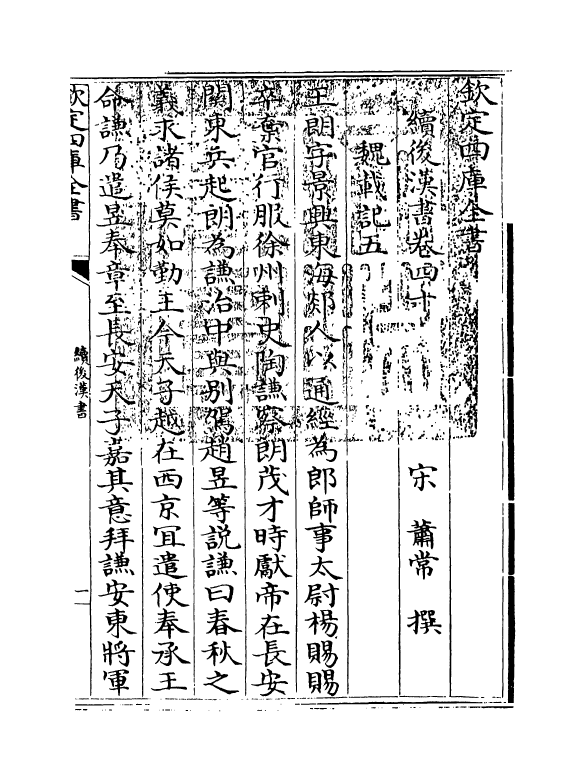 欽定四庫全書
續後漢書卷四十
宋 蕭常 撰
魏載記五
王朗字景興東海郯人以通經為郎師事太尉楊賜賜
卒棄官行服徐州刺史陶謙察朗茂才時獻帝在長安
關東兵起朗為謙治中與别駕趙昱等説謙曰春秋之
義求諸侯莫如勤王今天子越在西京宜遣使奉承王
命謙乃遣昱奉章至長安天子嘉其意拜謙安東將軍
欽定四庫全書
續後漢書
一